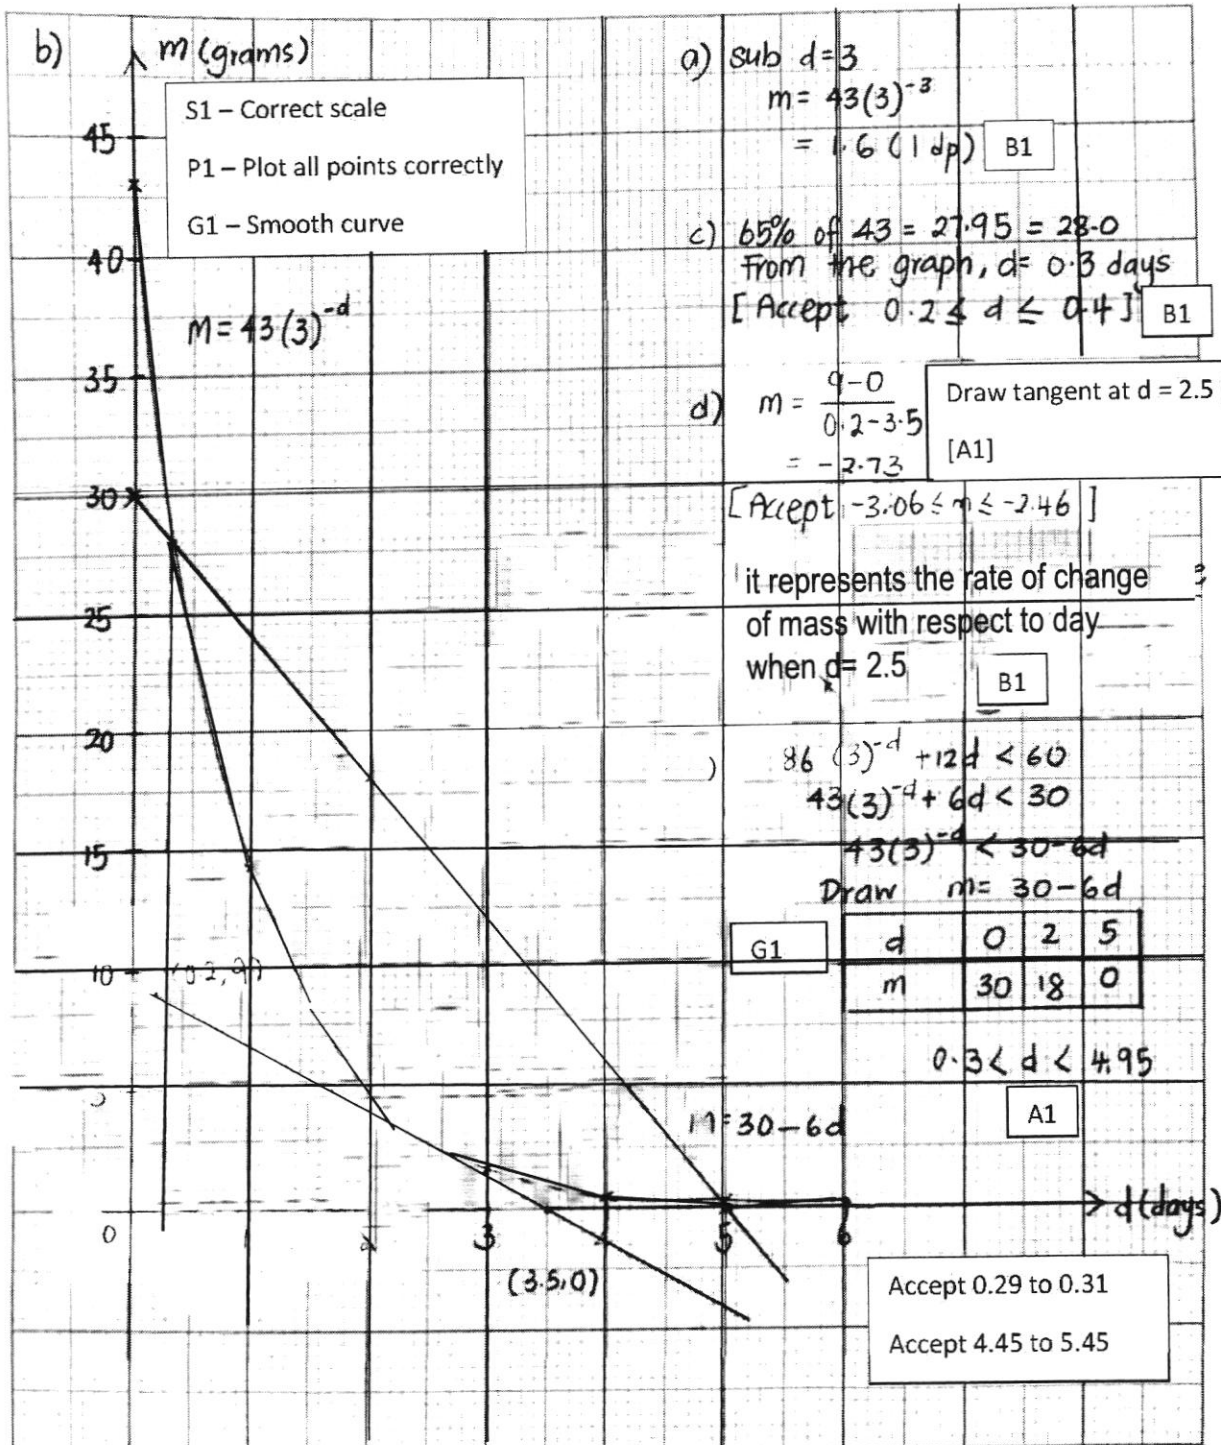 b)
m (grams)
S1 – Correct scale
P1 – Plot all points correctly
G1 – Smooth curve
45
40
35
30
25
20
15
10
0
m = 43(3)^-d
2
3
4
5
6
d (days)
(3.5,0)
m = 30-6d
a) sub d=3
m = 43(3)^-3
= 1.6 (1 dp)
B1
c) 65% of 43 = 27.95 = 28.0
From the graph, d= 0.3 days
[Accept 0.2 ≤ d ≤ 0.4]
B1
d) m = 9-0
0.2-3.5
= -2.73
Draw tangent at d = 2.5
[A1]
[Accept -3.06 ≤ m ≤ -2.46]
it represents the rate of change
of mass with respect to day
when d= 2.5
B1
) 86 (3)^-d +12d < 60
43(3)^-d + 6d < 30
43(3)^-d < 30-6d
Draw m= 30-6d
G1
d 0 2 5
m 30 18 0
0.3 < d < 4.95
A1
Accept 0.29 to 0.31
Accept 4.45 to 5.45